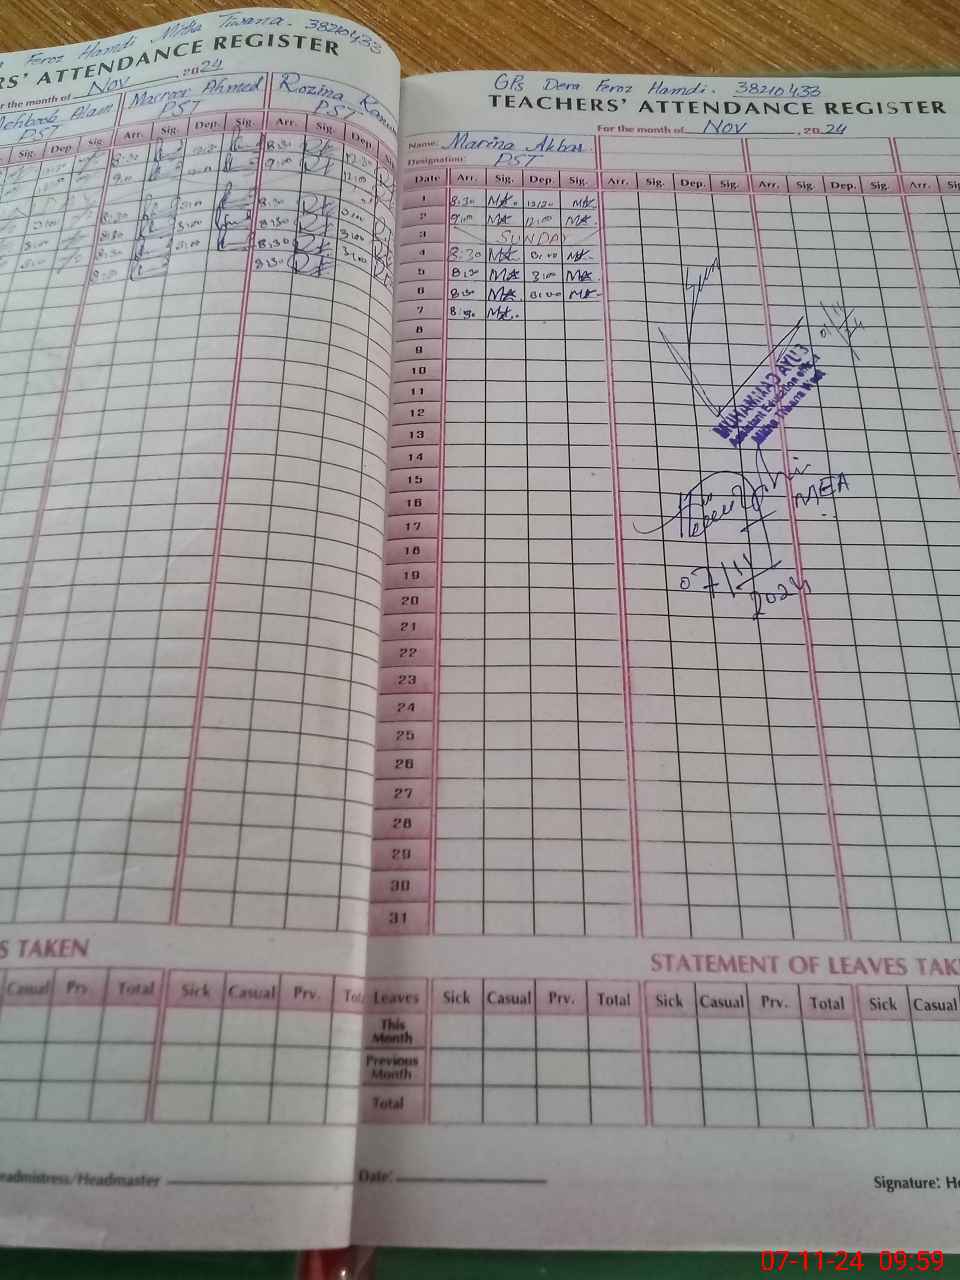 Feroz Hamdi Mitha Tiwana. 38210433
RS' ATTENDANCE REGISTER
For the month of Nov , 2024
Mehboob Alam Masroor Ahmed Rozina
PST PST PST
Sig. Dep. Sig. Arr. Sig. Dep. Sig. Arr. Sig. Dep.
8:30 12:20 8:30 12:20
9:00 9:00 12:00
8:30 3:00 8:30 3:00
3:00 8:30 3:00 8:30 3:00
3:00 8:30 3:00 8:30 3:00
3:00 8:30 8:30
S TAKEN
Casual Prv. Total Sick Casual Prv.
eadmistress/Headmaster
GPs Dera Feroz Hamdi. 38210433
TEACHERS' ATTENDANCE REGISTER
For the month of Nov , 2024
Name: Marina Akbar
Designation: PST
Date Arr. Sig. Dep. Sig. Arr. Sig. Dep. Sig. Arr. Sig. Dep. Sig. Arr.
1 8:30 12:20
2 9:00 12:00
3 SUNDAY
4 8:30 3:00
5 8:30 3:00
6 8:30 3:00
7 8:30
8
9
10
11
12
13
14
15
16
17
18
19
20
21
22
23
24
25
26
27
28
29
30
31
MUHAMMAD AYUB
Assistant Education
MEA
07/11/2024
STATEMENT OF LEAVES TAK
Leaves Sick Casual Prv. Total Sick Casual Prv. Total Sick Casual
This Month
Previous Month
Total
Date:
Signature: He
07-11-24 09:59